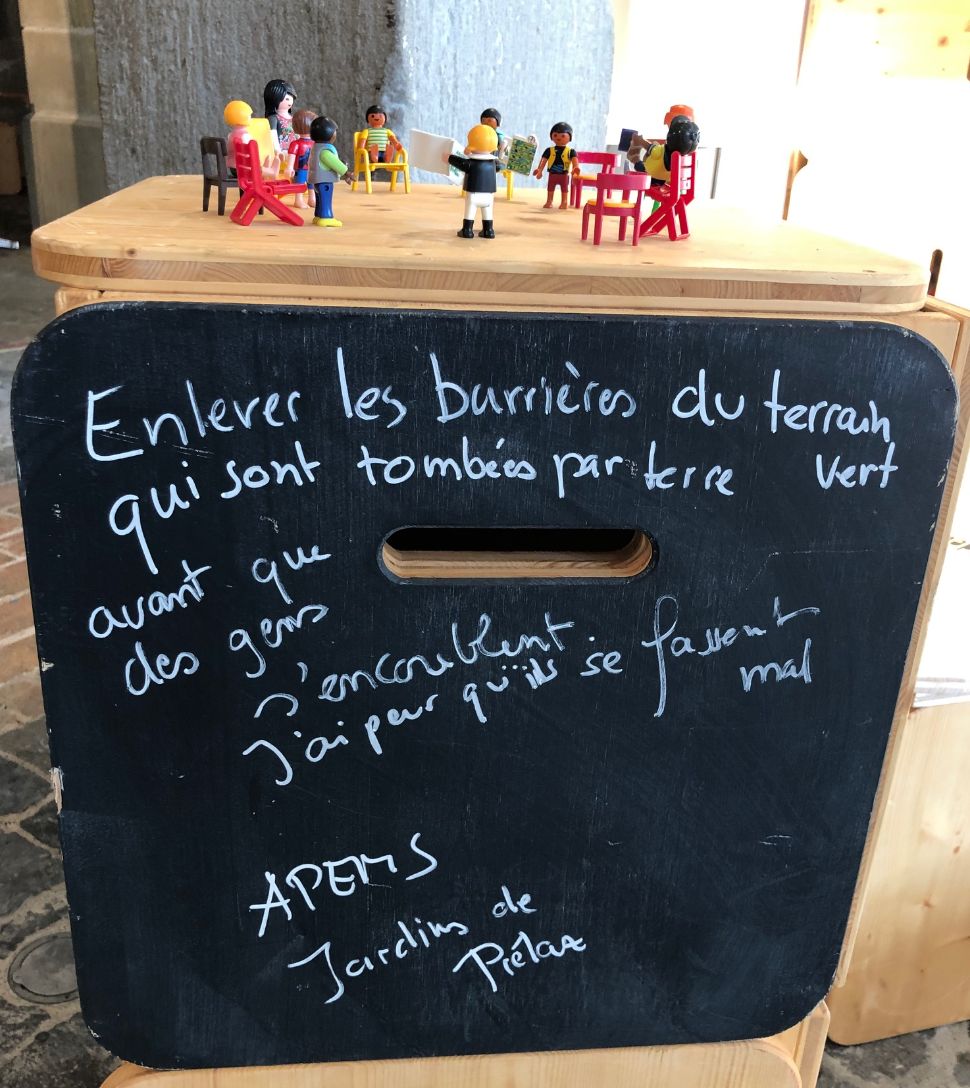 Enlever les barrières du terrain
qui sont tombées par terre vert
avant que
des gens
s'encoublent
J'ai peur qu'ils se fassent
mal
APEMS
Jardins de
Prélaz